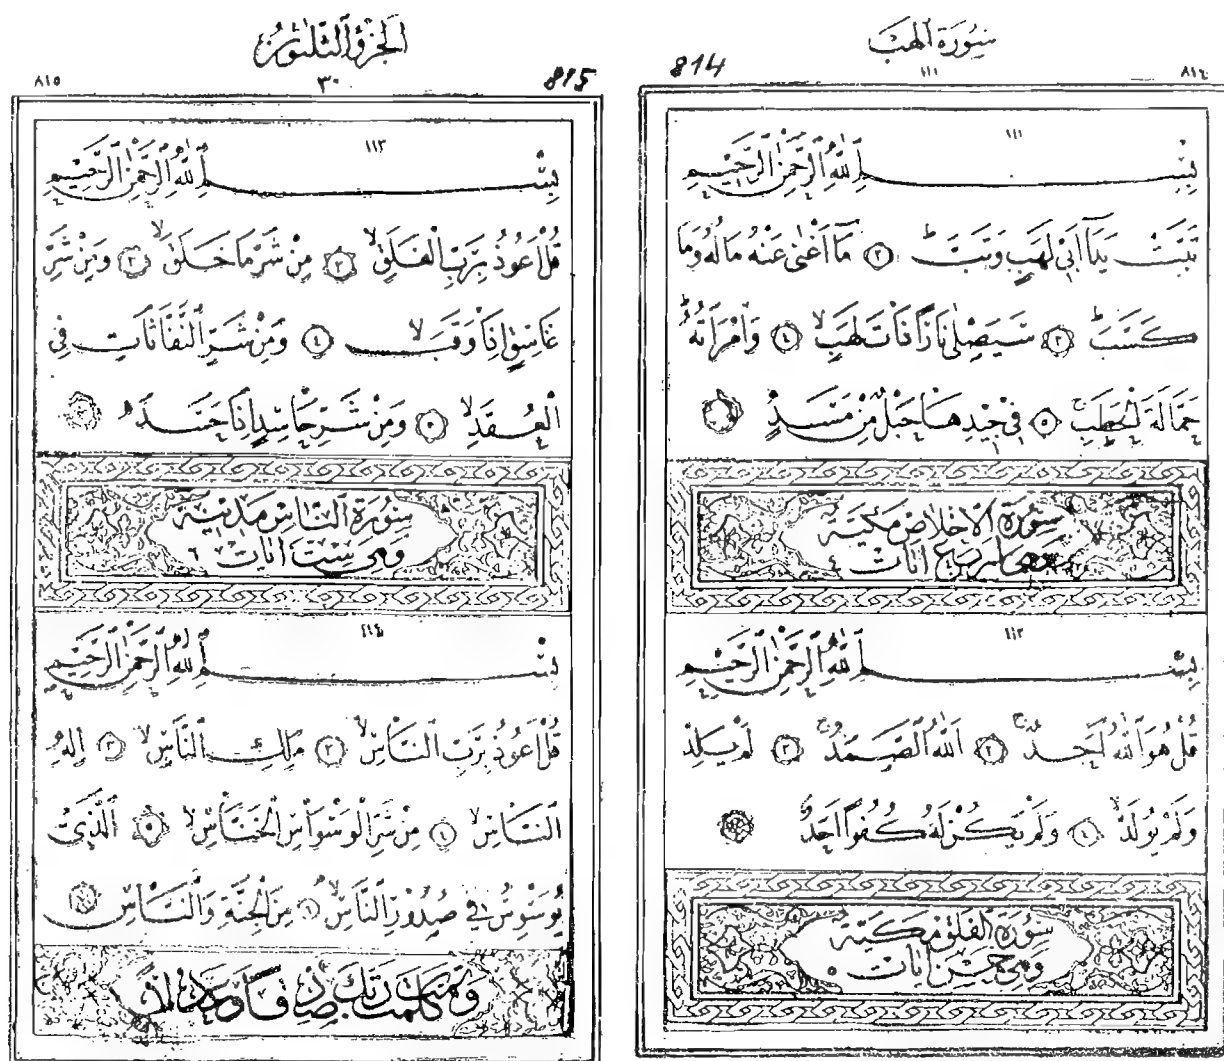 سُورَةُ الهب
814 ١١١ ٨١٤
١١١
بِسْمِ اللّٰهِ الرَّحْمٰنِ الرَّحِيمِ
تَبَّتْ يَدَا اَبِي لَهَبٍ وَتَبَّ ط ٢ مَا اَغْنٰى عَنْهُ مَالُهُ وَمَا
كَسَبَ ط ٣ سَيَصْلٰى نَارًا ذَاتَ لَهَبٍ لا ٤ وَامْرَاَتُهُ ط
حَمَّالَةَ الْحَطَبِ ج ٥ فِي جِيدِهَا حَبْلٌ مِنْ مَسَدٍ
سُورَةُ الْاِخْلَاصِ مَكِّيَّةٌ
وَهِيَ اَرْبَعُ اٰيَاتٍ ٤
١١٢
بِسْمِ اللّٰهِ الرَّحْمٰنِ الرَّحِيمِ
قُلْ هُوَ اللّٰهُ اَحَدٌ ج ٢ اَللّٰهُ الصَّمَدُ ج ٣ لَمْ يَلِدْ
وَلَمْ يُولَدْ لا ٤ وَلَمْ يَكُنْ لَهُ كُفُوًا اَحَدٌ
سُورَةُ الْفَلَقِ مَكِّيَّةٌ
وَهِيَ خَمْسُ اٰيَاتٍ ٥
اَلْجُزْؤُ الثَّلٰثُونَ
815 ٣٠ ٨١٥
١١٣
بِسْمِ اللّٰهِ الرَّحْمٰنِ الرَّحِيمِ
قُلْ اَعُوذُ بِرَبِّ الْفَلَقِ لا ٢ مِنْ شَرِّ مَا خَلَقَ لا ٣ وَمِنْ شَرِّ
غَاسِقٍ اِذَا وَقَبَ لا ٤ وَمِنْ شَرِّ النَّفَّاثَاتِ فِي
الْعُقَدِ لا ٥ وَمِنْ شَرِّ حَاسِدٍ اِذَا حَسَدَ
سُورَةُ النَّاسِ مَدَنِيَّةٌ
وَهِيَ سِتُّ اٰيَاتٍ ٦
١١٤
بِسْمِ اللّٰهِ الرَّحْمٰنِ الرَّحِيمِ
قُلْ اَعُوذُ بِرَبِّ النَّاسِ لا ٢ مَلِكِ النَّاسِ لا ٣ اِلٰهِ
النَّاسِ لا ٤ مِنْ شَرِّ الْوَسْوَاسِ الْخَنَّاسِ لا ٥ اَلَّذِي
يُوَسْوِسُ فِي صُدُورِ النَّاسِ لا ٦ مِنَ الْجِنَّةِ وَالنَّاسِ
وَتَمَّتْ كَلِمَتُ رَبِّكَ صِدْقًا وَعَدْلًا